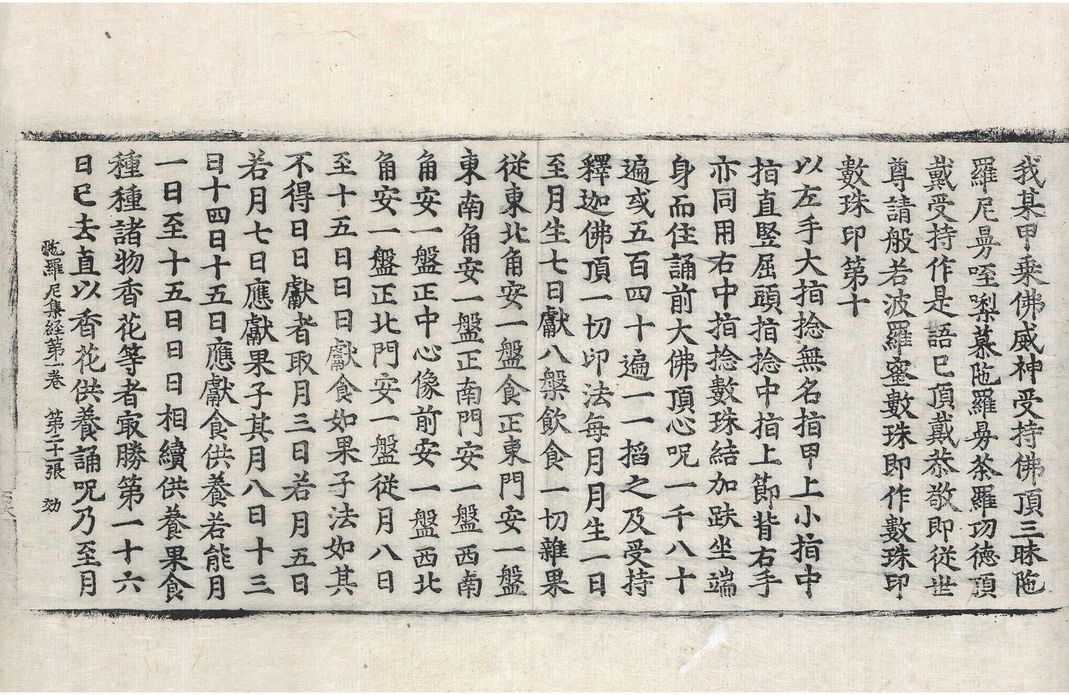 我某甲乗佛威神受持佛頂三昧陁
羅尼曼咥㗚慕陁羅曼荼羅功德頂
戴受持作是語巳頂戴恭敬即從世
尊請般若波羅蜜數珠即作數珠印
數珠印第十
以左手大指捻無名指甲上小指中
指直竪屈頭指捻中指上節背右手
亦同用右中指捻數珠結加趺坐端
身而住誦前大佛頂心呪一千八十
遍或五百四十遍一一掐之及受持
釋迦佛頂一切印法每月月生一日
至月生七日獻八槃飮食一切雜果
從東北角安一盤食正東門安一盤
東南角安一盤正南門安一盤西南
角安一盤正中心像前安一盤西北
角安一盤正北門安一盤從月八日
至十五日日日獻食如果子法如其
不得日日獻者取月三日若月五日
若月七日應獻果子其月八日十三
日十四日十五日應獻食供養若能月
一日至十五日日日相續供養果食
種種諸物香花等者㝡勝第一十六
日巳去直以香花供養誦呪乃至月
陁羅尼集経第一卷 第二十二張 効